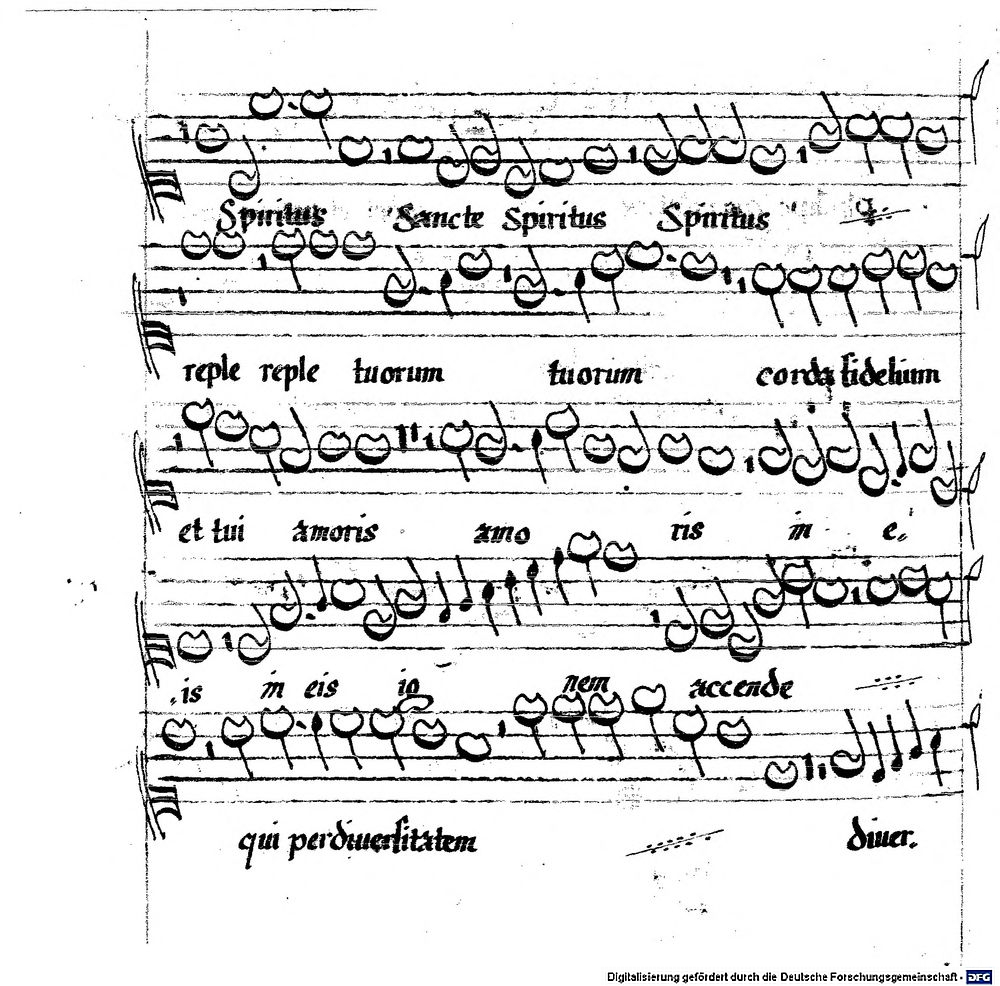 Spiritus Sancte Spiritus Spiritus
reple reple tuorum tuorum corda fidelium
et tui amoris amo ris in e.
.is in eis ig nem accende
qui perdiuersitatem diuer.
Digitalisierung gefördert durch die Deutsche Forschungsgemeinschaft - DFG